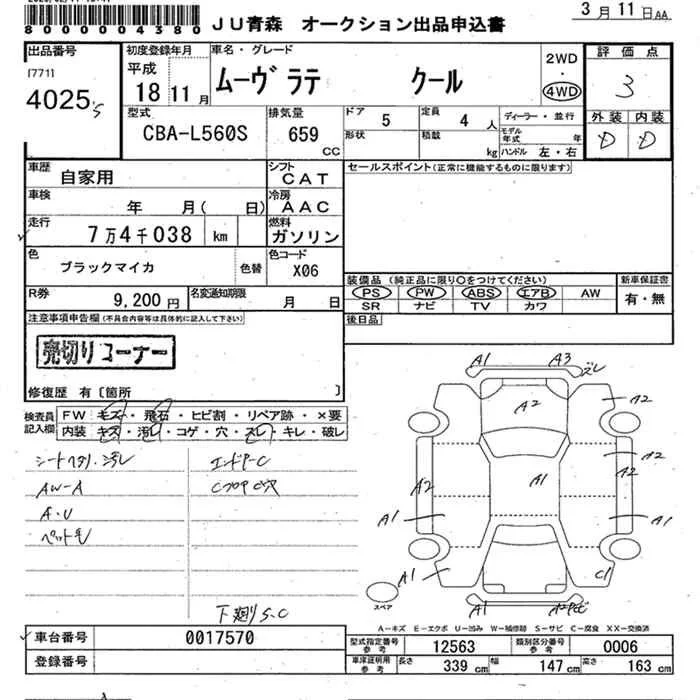 8 0 0 0 0 0 0 4 3 8 0
JU青森 オークション出品申込書
3月11日AA
出品番号
[771]
4025
初度登録年月
平成
18 11月
車名・グレード
ムーヴラテ クール
2WD
・
4WD
評価点
3
外装 内装
D D
型式
CBA-L560S
排気量
659
cc
ドア
5
定員
4人
形状
積載
kg
ディーラー・並行
モデル年式 年
ハンドル 左・右
車歴
自家用
シフト
CAT
車検
年 月( 日)
冷房
AAC
走行
7万4千038 km
燃料
ガソリン
色
ブラックマイカ
色替
色コード
X06
R券
9,200円
名変通知期限
月 日
セールスポイント(正常に機能するものに限ります)
装備品(純正品に限り○をつけてください)
PS PW ABS エアB AW
SR ナビ TV カワ
新車保証書
有・無
後日品
注意事項申告欄(不具合内容等は具体的に記入して下さい)
売切りコーナー
修復歴 有〔箇所 〕
検査員記入欄
FW キズ・飛石・ヒビ割・リペア跡・×要
内装 キズ・汚れ・コゲ・穴・スレ・キレ・破レ
シートヘタリ・汚レ
AW-A
A・U
ペット毛
下廻りS.C
A1 A3 スレ
A2
A2
A2
A2
A1
A2
A1
A1
A1
C1
A1
スペア
A-キズ E-エクボ U-凹み W-補修跡 S-サビ C-腐食 XX-交換済
車台番号
0017570
登録番号
型式指定番号 参考
12563
類別区分番号 参考
0006
車庫証明用 参考
長さ
339 cm
幅
147 cm
高さ
163 cm